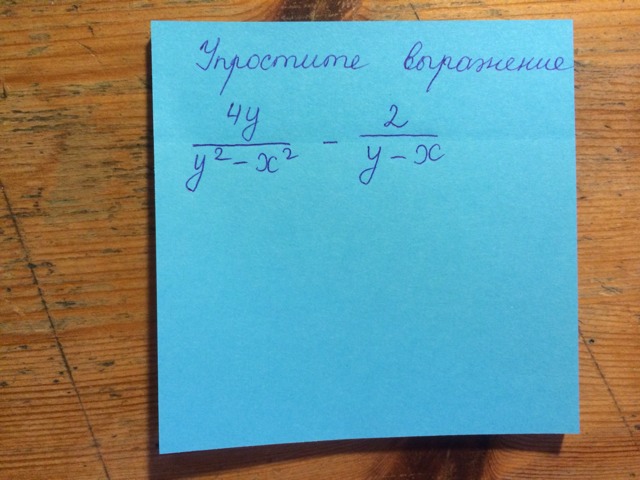 Упростите выражение
4y/(y²-x²) - 2/(y-x)